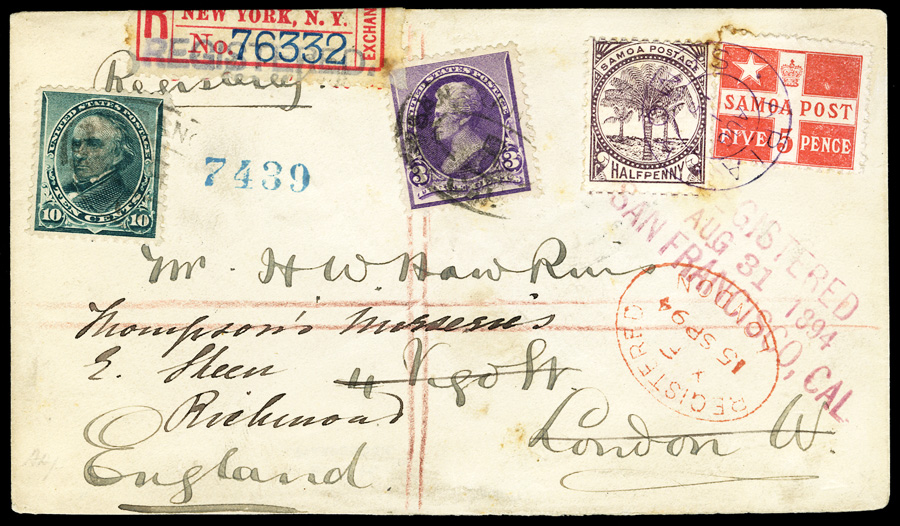 R
NEW YORK, N. Y.
EXCHANGE
No. 76332
REGISTERED.
Registered
UNITED STATES POSTAGE
10 TEN CENTS 10
7439
UNITED STATES POSTAGE
3 3
SAMOA POSTAGE
HALFPENNY
SAMOA POST
FIVE 5 PENCE
APIA
REGISTERED
AUG 31 1894
SAN FRANCISCO, CAL
REGISTERED
15 SP 94
LONDON
Mr. H W Hawkins
Thompson's Nurseries
E. Sheen
4 Vigo St.
Richmond
London W.
England